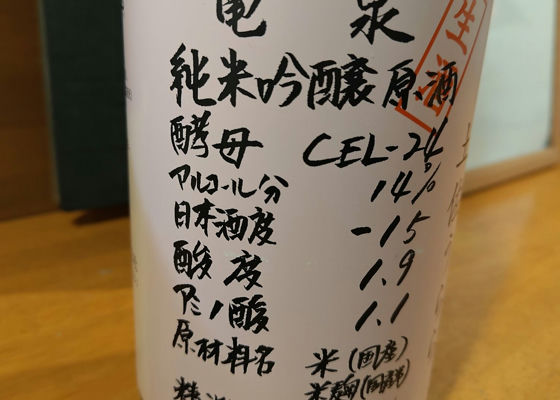 亀泉
純米吟醸原酒
酵母 CEL-24
アルコール分 14%
日本酒度 -15
酸度 1.9
アミノ酸 1.1
原材料名 米(国産)
米麹(国産米)